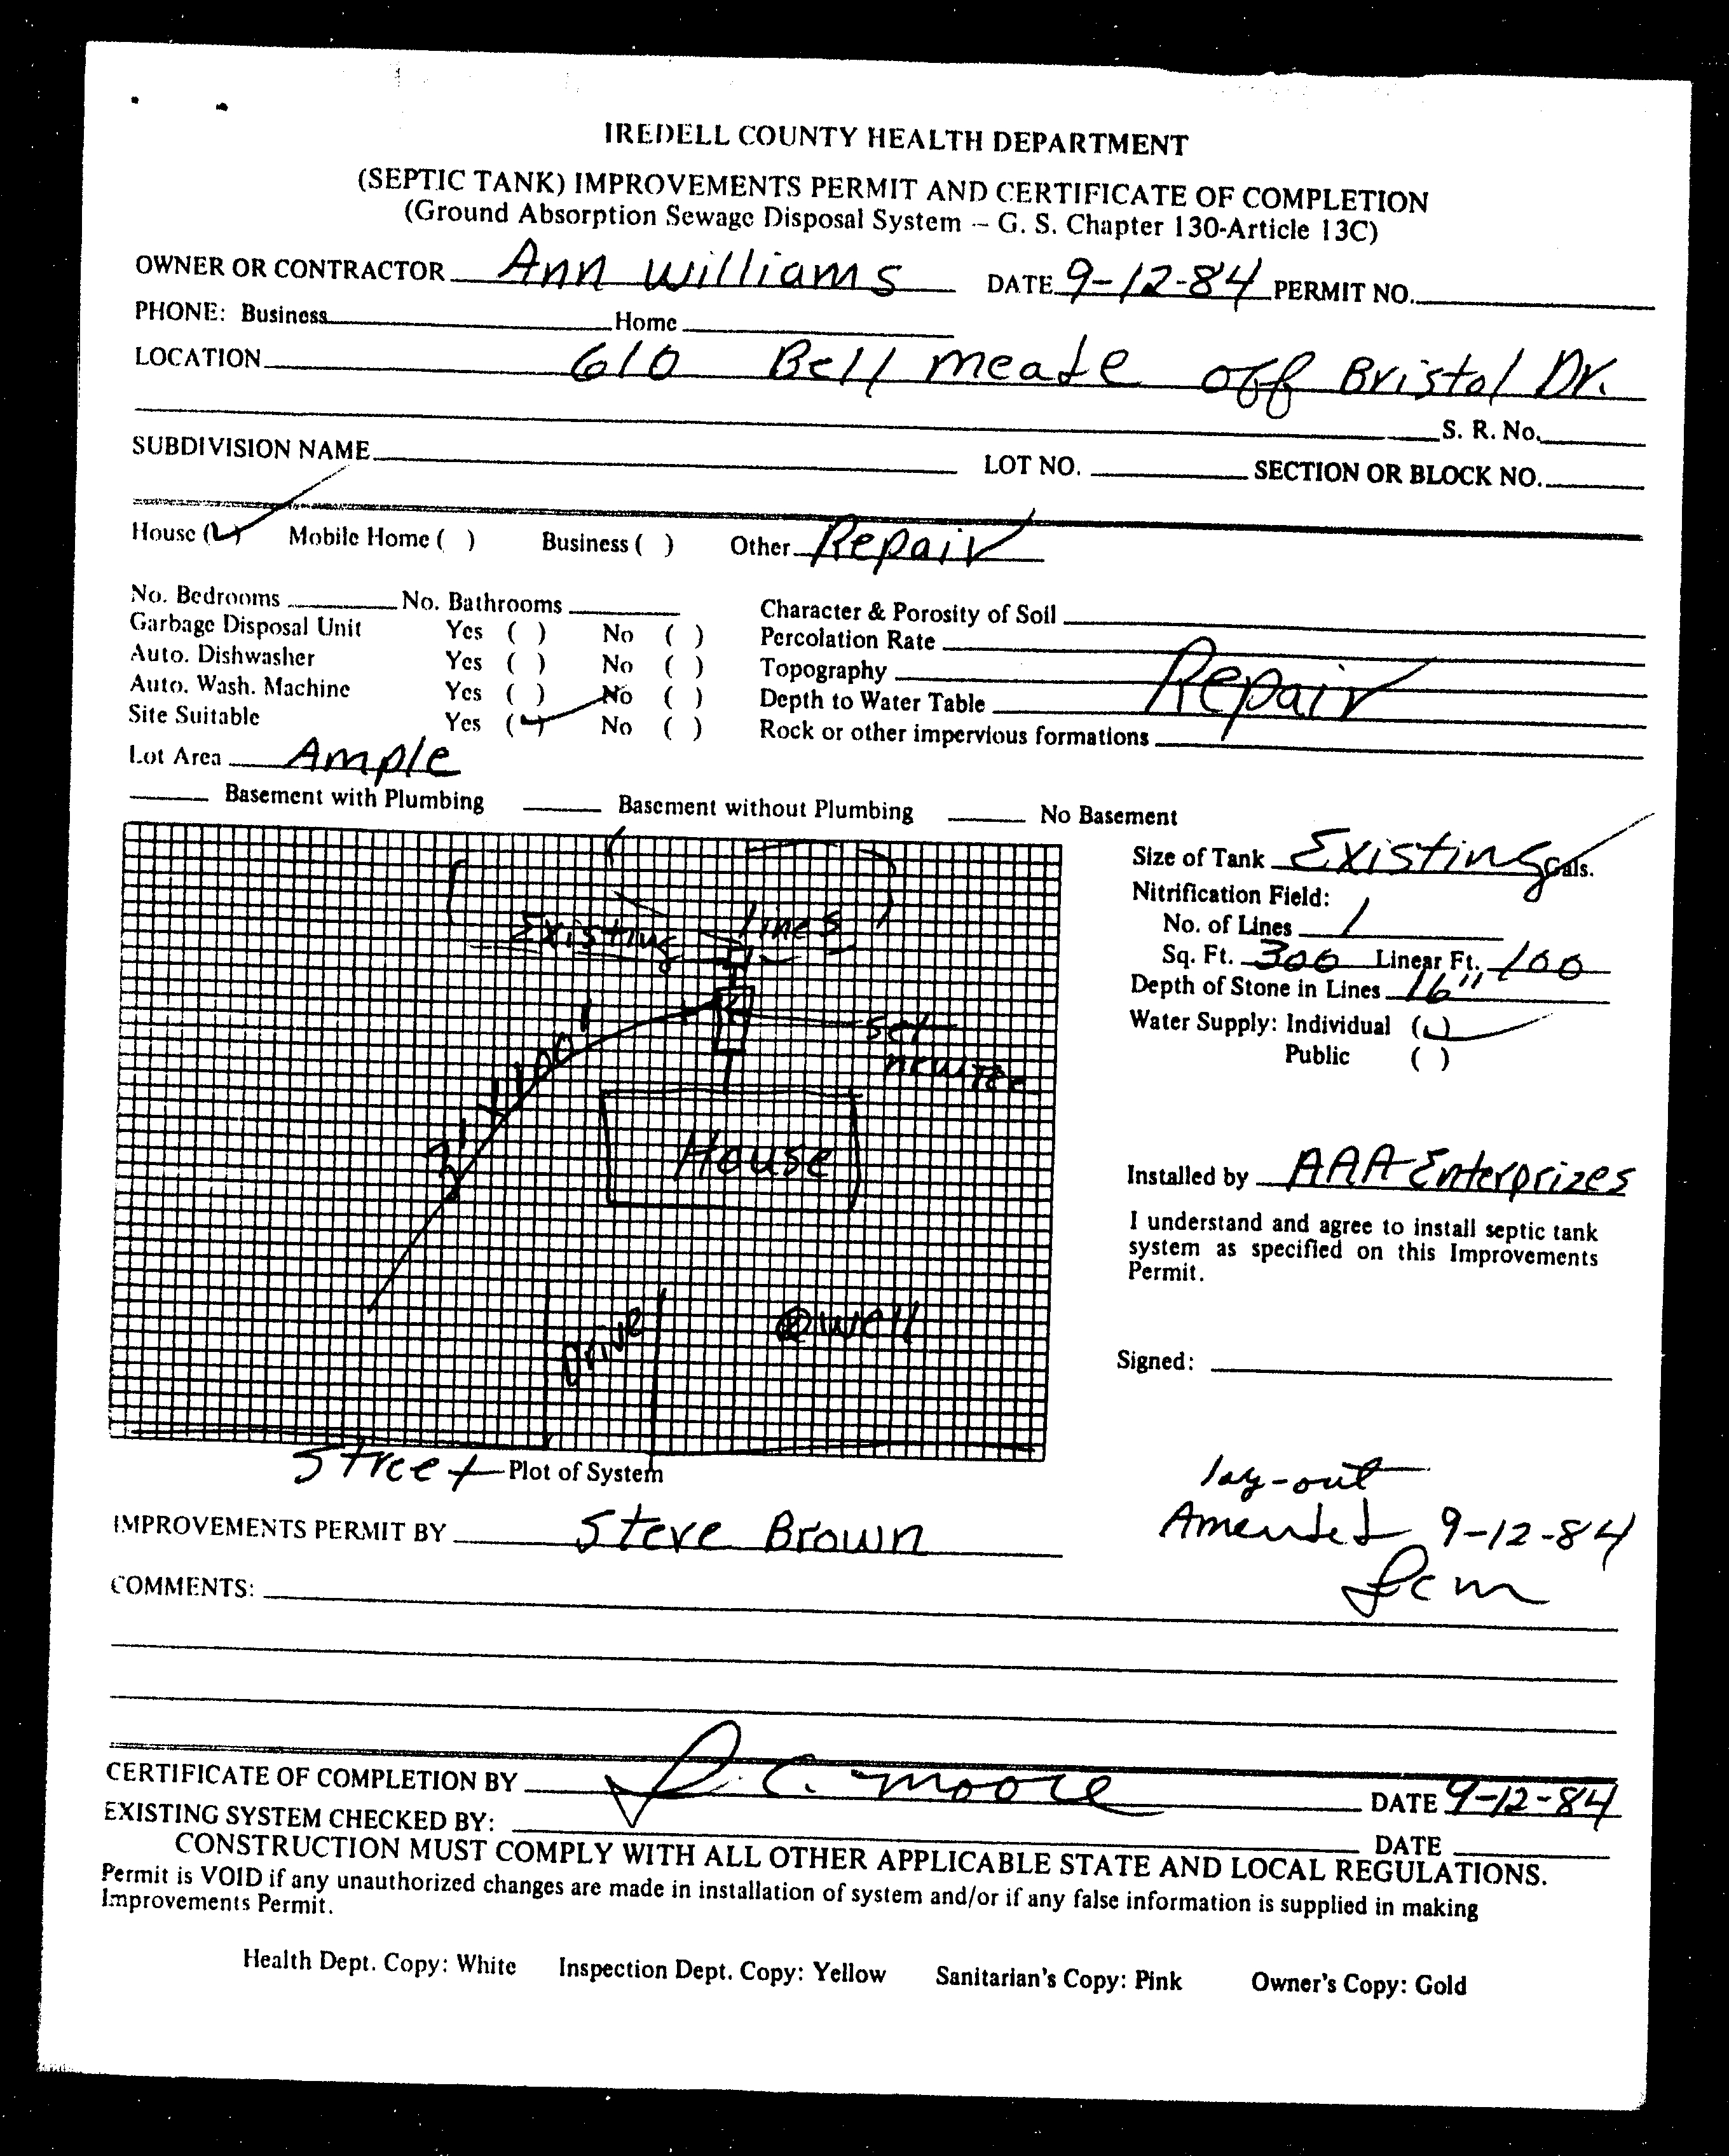 IREDELL COUNTY HEALTH DEPARTMENT
(SEPTIC TANK) IMPROVEMENTS PERMIT AND CERTIFICATE OF COMPLETION
(Ground Absorption Sewage Disposal System – G. S. Chapter 130-Article 13C)
OWNER OR CONTRACTOR Ann Williams DATE 9-12-84 PERMIT NO.
PHONE: Business Home
LOCATION 610 Bell meade off Bristol Dr.
S. R. No.
SUBDIVISION NAME LOT NO. SECTION OR BLOCK NO.
House (✓) Mobile Home ( ) Business ( ) Other Repair
No. Bedrooms No. Bathrooms Character & Porosity of Soil
Garbage Disposal Unit Yes ( ) No ( ) Percolation Rate
Auto. Dishwasher Yes ( ) No ( ) Topography Repair
Auto. Wash. Machine Yes ( ) No ( ) Depth to Water Table
Site Suitable Yes (✓) No ( ) Rock or other impervious formations
Lot Area Ample
Basement with Plumbing Basement without Plumbing No Basement
Size of Tank Existing Gals.
Nitrification Field:
No. of Lines 1
Sq. Ft. 300 Linear Ft. 100
Depth of Stone in Lines 16"
Water Supply: Individual (✓)
Public ( )
Existing lines
set
new Tee
100'
3'
House
Drive
well
Street
Plot of System
Installed by AAA Enterprizes
I understand and agree to install septic tank
system as specified on this Improvements
Permit.
Signed:
lay-out
Amended 9-12-84
IMPROVEMENTS PERMIT BY Steve Brown
COMMENTS:
CERTIFICATE OF COMPLETION BY J. C. Moore DATE 9-12-84
EXISTING SYSTEM CHECKED BY: DATE
CONSTRUCTION MUST COMPLY WITH ALL OTHER APPLICABLE STATE AND LOCAL REGULATIONS.
Permit is VOID if any unauthorized changes are made in installation of system and/or if any false information is supplied in making
Improvements Permit.
Health Dept. Copy: White Inspection Dept. Copy: Yellow Sanitarian's Copy: Pink Owner's Copy: Gold